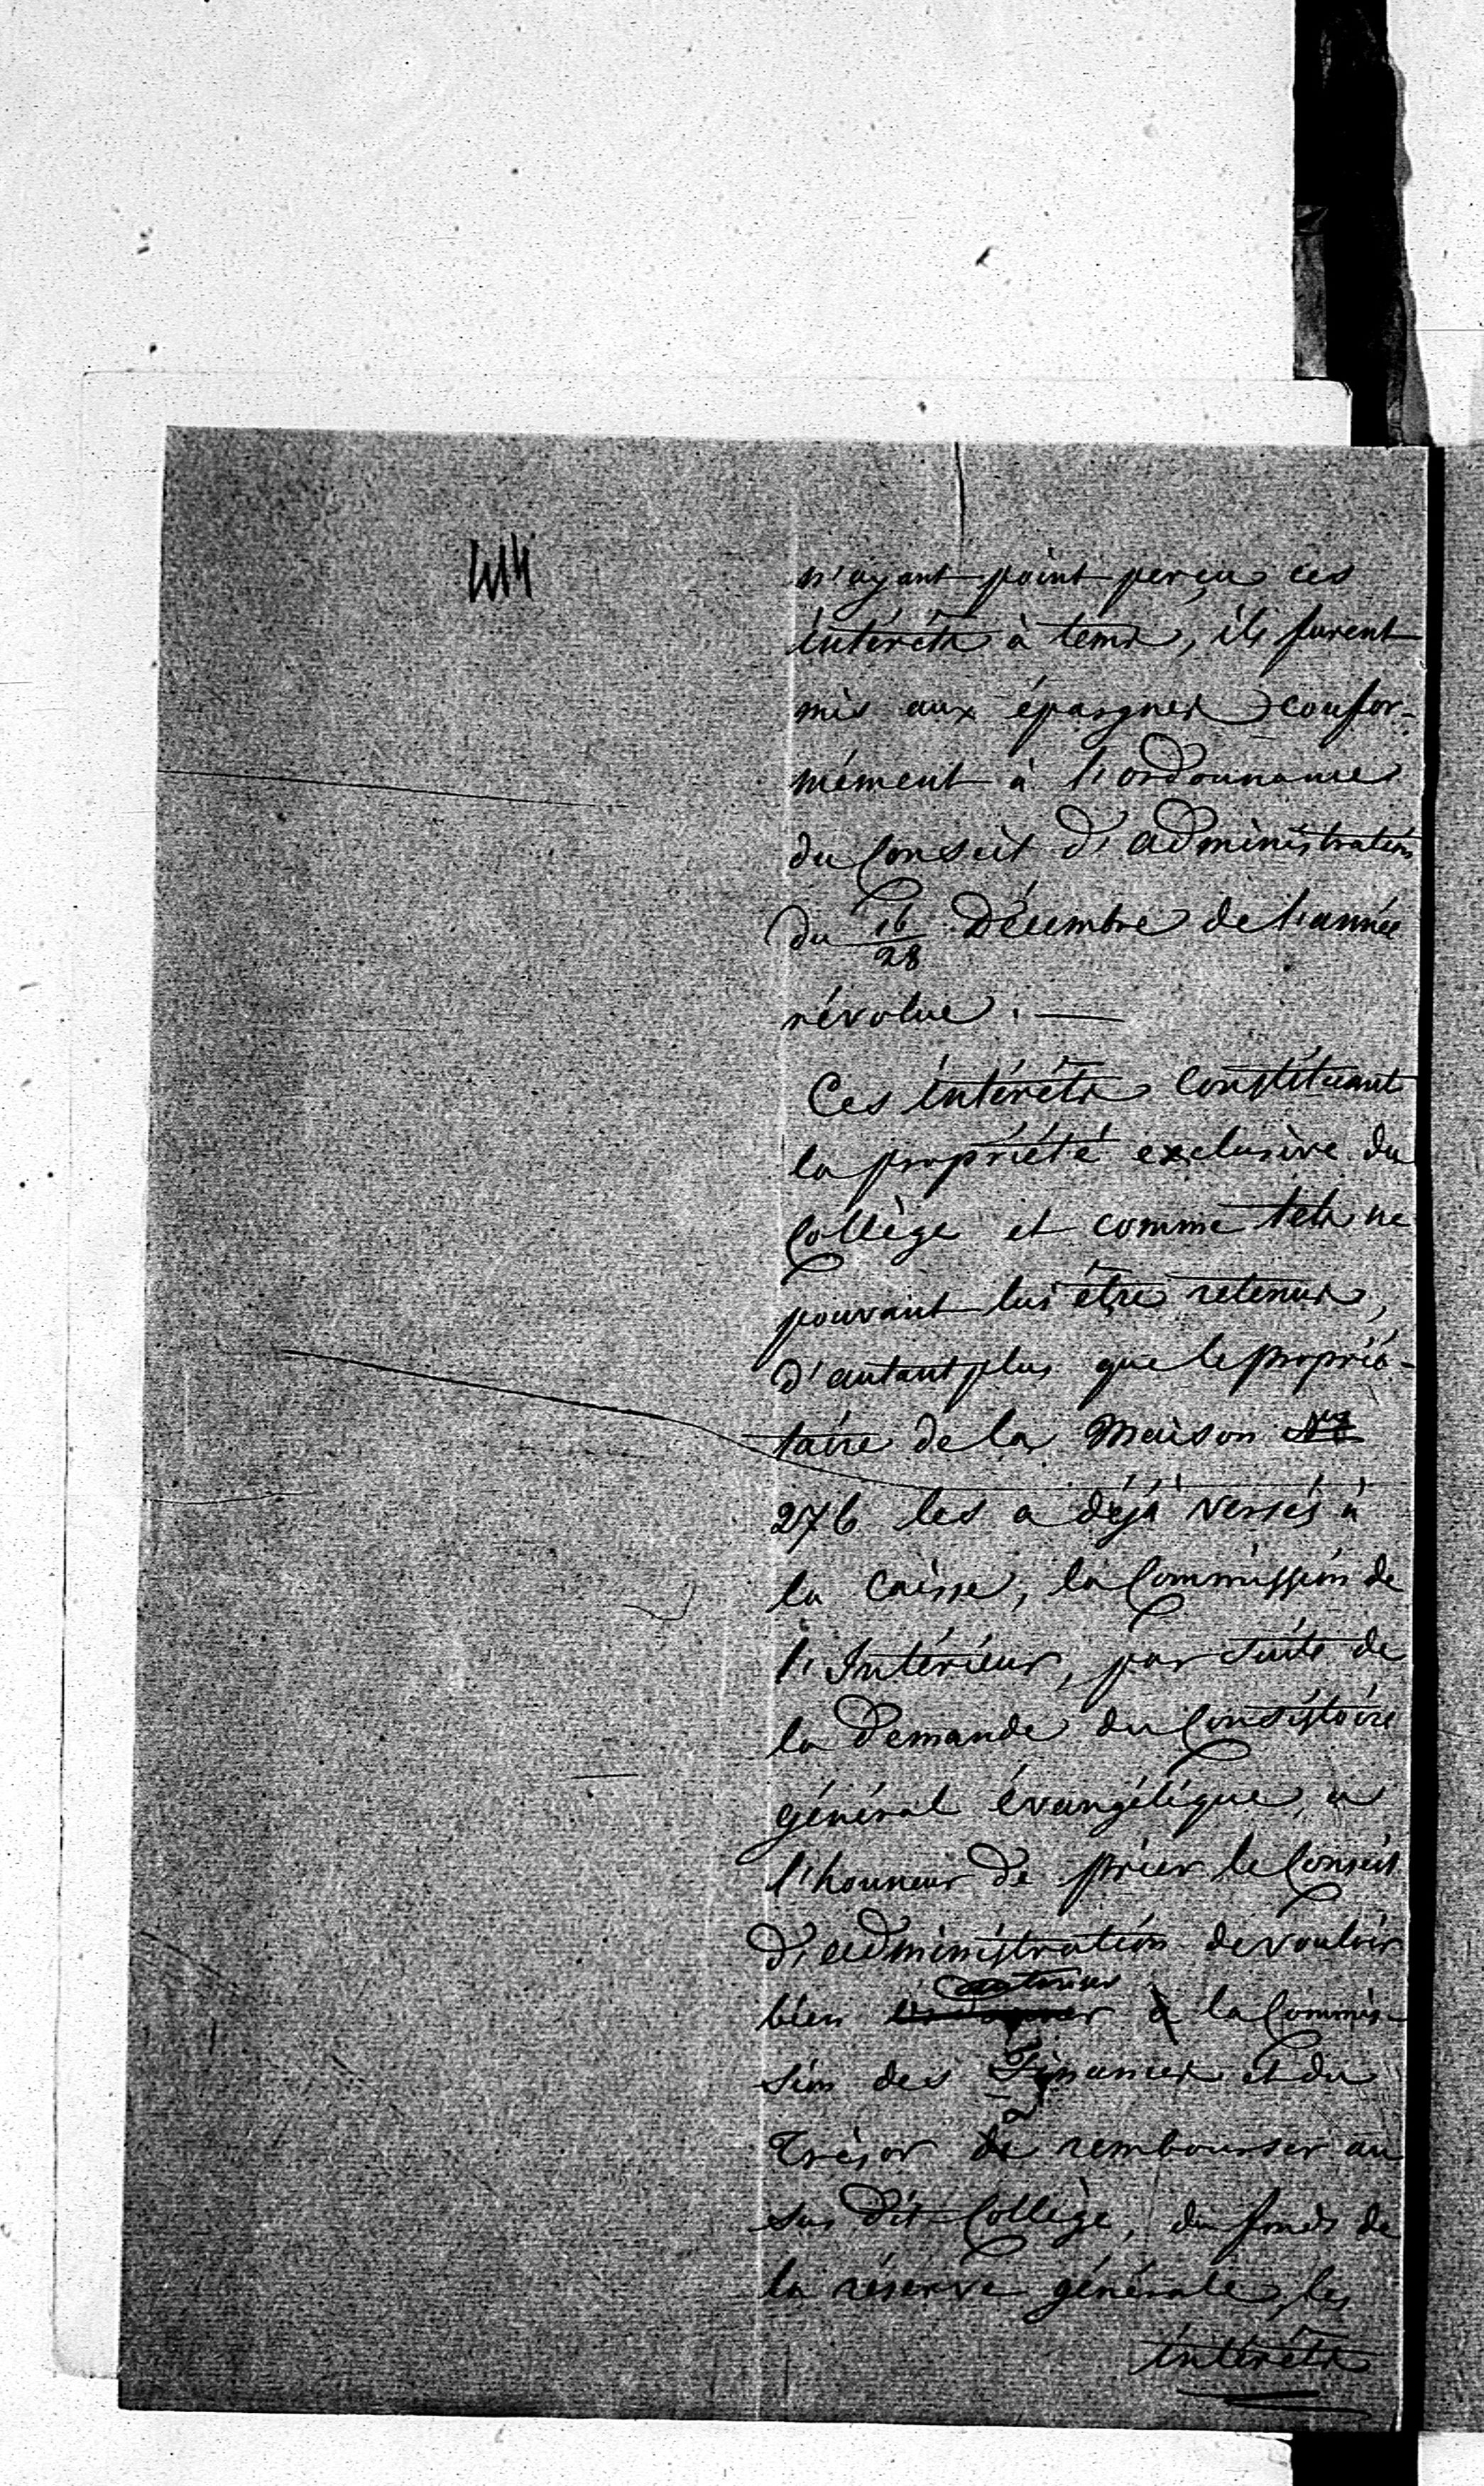 414
n'ayant point perçu ces
intérêts à tems, ils furent
mis aux épargnes, confor-
mément à l'ordonnance
du Conseil d'administration
du 16/28 Décembre de l'année
révolue. —
Ces intérêts constituant
la propriété exclusive du
Collège et comme tels ne
pouvant lui être retenus,
d'autant plus que le proprié-
taire de la Maison No
276 les a déjà versés à
la Caisse, la Commission de
l'Intérieur, par suite de
la demande du Consistoire
général évangélique, a
l'honneur de prier le Conseil
d'administration de vouloir
autoriser
bien la Commis-
sion des Finances et du
à
Trésor de rembourser au
sus dit Collège, du fonds de
la réserve générale, les
intérêts